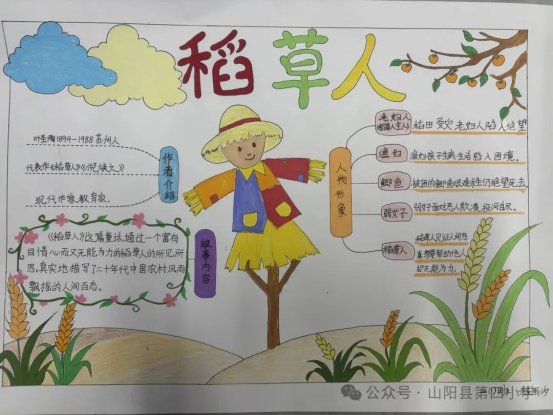 稻草人
叶圣陶1894-1988 苏州人
代表作《稻草人》《倪焕之》
现代作家、教育家。
作者介绍
《稻草人》这篇童话,通过一个富有
同情心而又无能为力的稻草人的所见所
思,真实地描写了二十年代中国农村风雨
飘摇的人间百态。
故事内容
人物形象
老妇人
稻田受灾 老妇人陷入绝望
渔妇
渔妇孩子生病 生活陷入困境。
鲫鱼
被困的鲫鱼艰难求生仍绝望死去。
弱女子
稻草人
稻草人见证人间悲
却无能为力。
公众号·山阳县第四小学